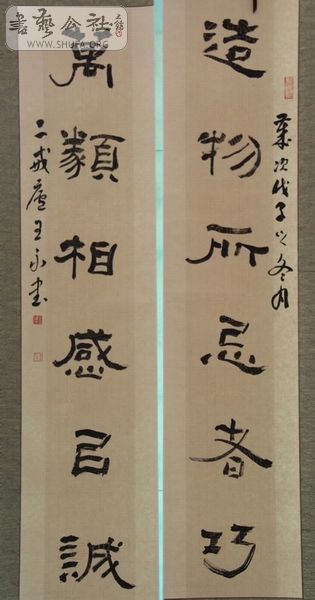 造物所忌者巧
萬類相感㠯誠
歲次戊子之冬月
二戒廬王永書
書藝公社
WWW.SHUFA.ORG